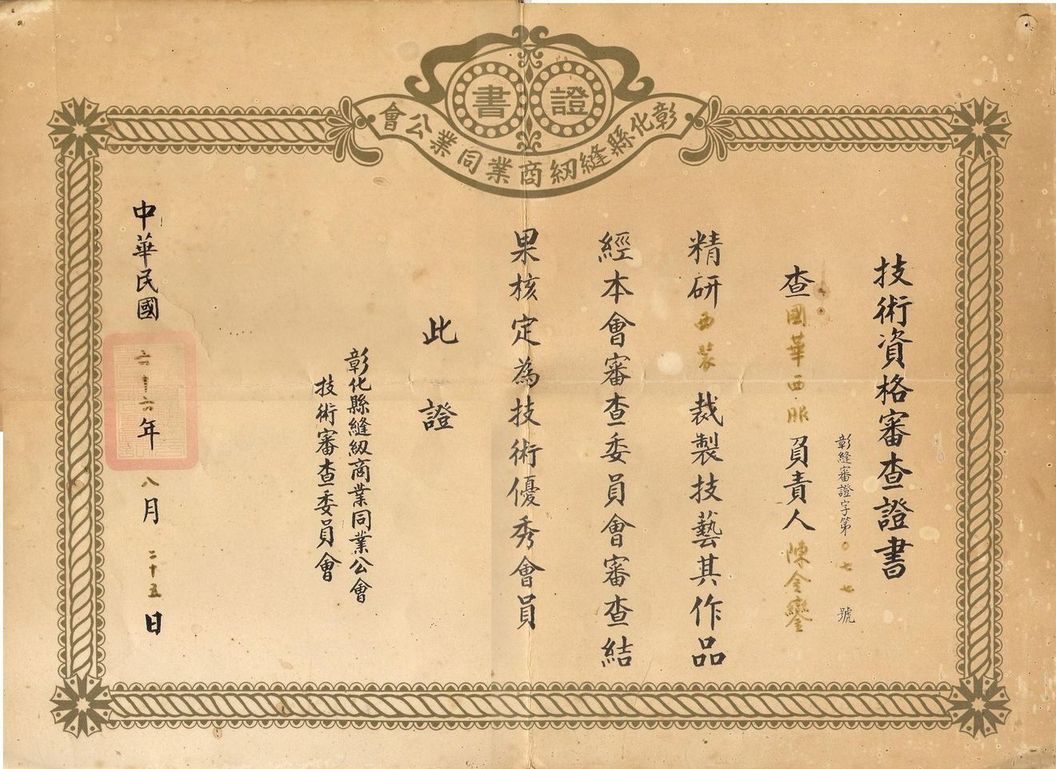 證書
彰化縣縫紉商業同業公會
技術資格審查證書
彰縫審證字第〇七七號
查國華西服負責人陳金鑾
精研西裝裁製技藝其作品
經本會審查委員會審查結
果核定為技術優秀會員
此證
彰化縣縫紉商業同業公會
技術審查委員會
中華民國六十六年八月二十五日